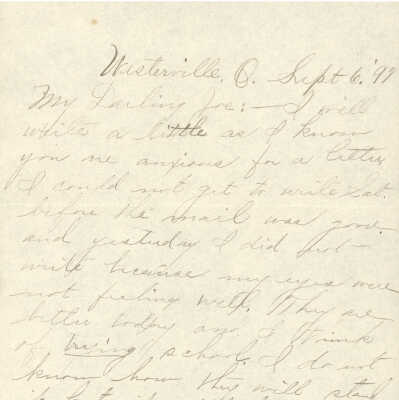 Westerville, O. Sept 6, '97
My Darling Joe:— I will
write a little as I know
you are anxious for a letter
I could not get to write Sat.
before the mail was gone
and yesterday I did not
write because my eyes were
not feeling well. They are
better today and I think
of trying school. I do not
know how they will stand
it but